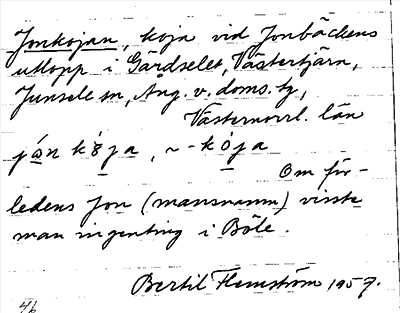 Jonkojan, koja vid Jonbäckens
utlopp i Gärdselet, Västertjärn,
Junsele sn, Ång. v. doms. tg,
Västernorrl. län
jo̱n kå̱ja, ~ - kȯja
Om för-
ledens Jon (mansnamn) visste
man ingenting i Böle.
Bertil Flemström 1957.
46